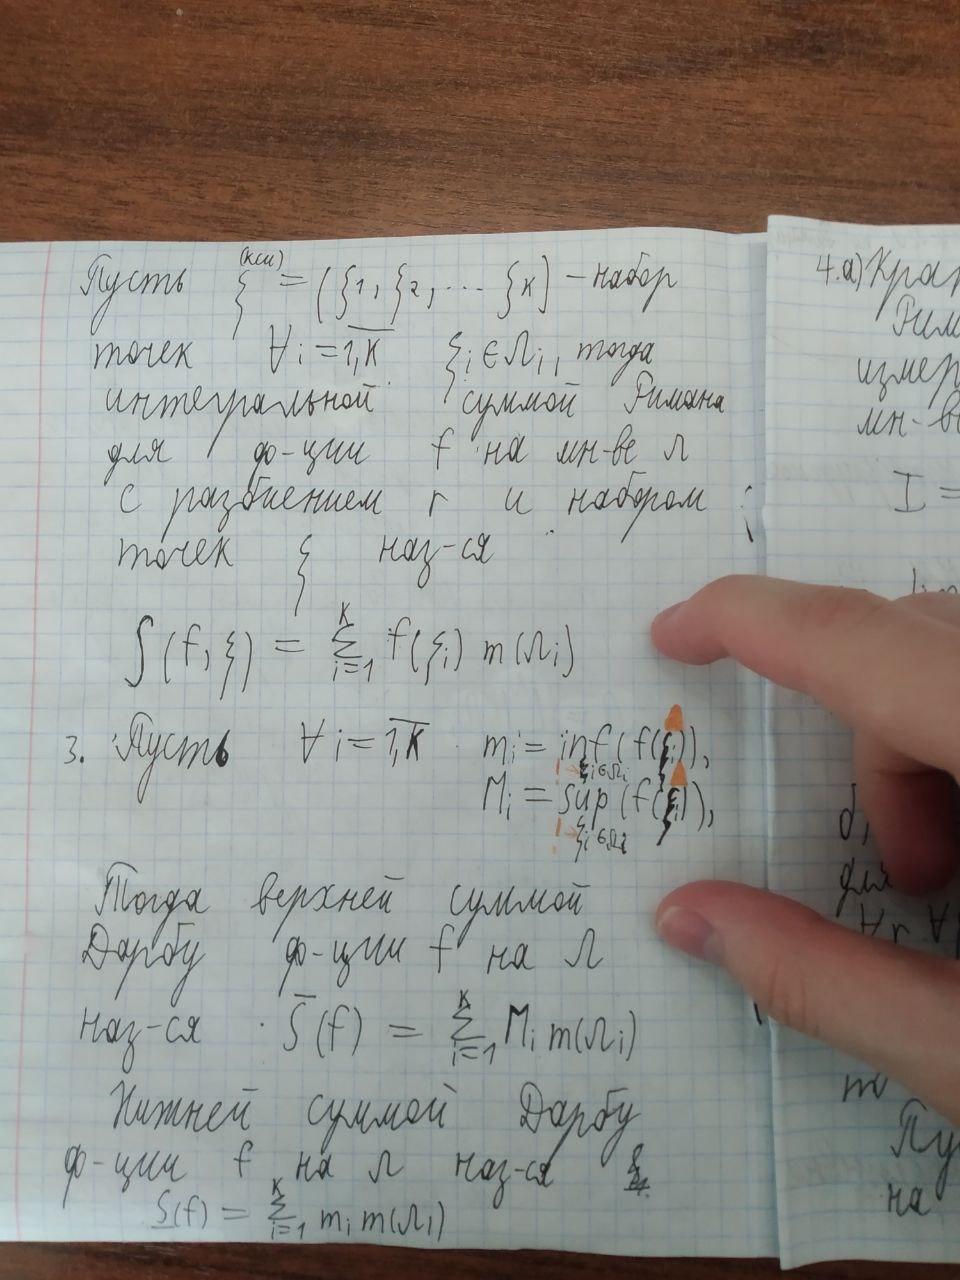 Пусть ξ (кси) = (ξ1, ξ2, ... ξк) – набор
точек ∀i = 1,К ξi ∈ Ωi, тогда
интегральной суммой Римана
для ф-ции f на мн-ве Ω
с разбиением r и набором
точек ξ наз-ся
S(f, ξ) = Σ_{i=1}^{К} f(ξi) m(Ωi)
3. Пусть ∀i = 1,К mi = inf_{ξi∈Ωi}(f(ξi)),
Mi = sup_{ξi∈Ωi}(f(ξi)),
Тогда верхней суммой
Дарбу ф-ции f на Ω
наз-ся S̅(f) = Σ_{i=1}^{К} Mi m(Ωi)
Нижней суммой Дарбу
ф-ции f на Ω наз-ся
S̲(f) = Σ_{i=1}^{К} mi m(Ωi)
4.а)
мн-ве
I =
для
Пу
на